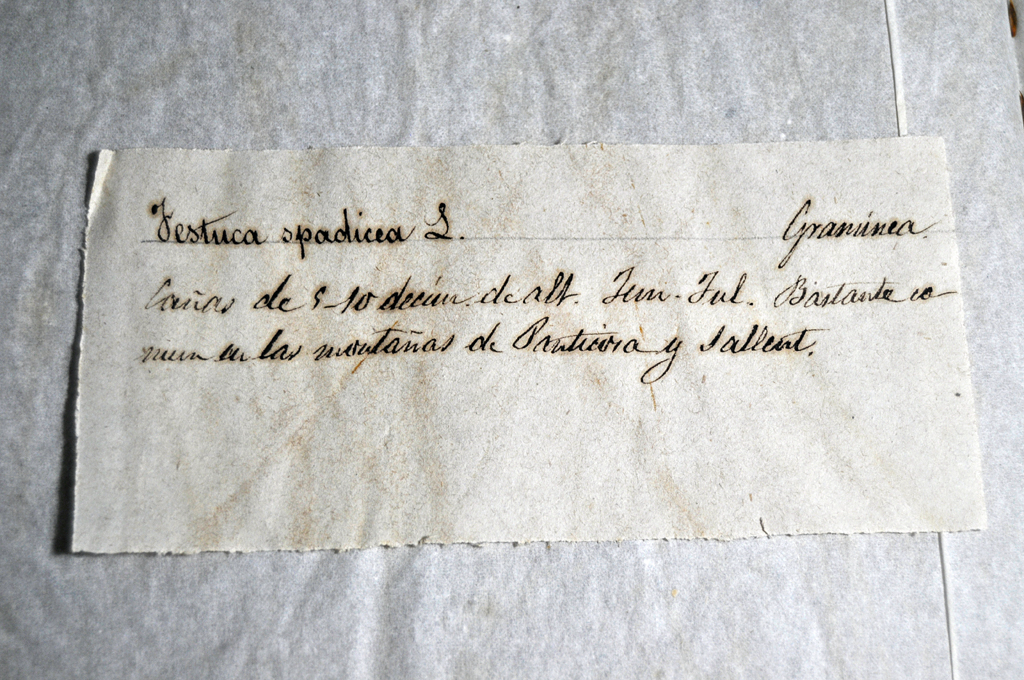 Festuca spadicea L. Gramínea.
Cañas de 5-10 decím. de alt. Jun. Jul. Bastante co-
mun en las montañas de Panticosa y Sallent.